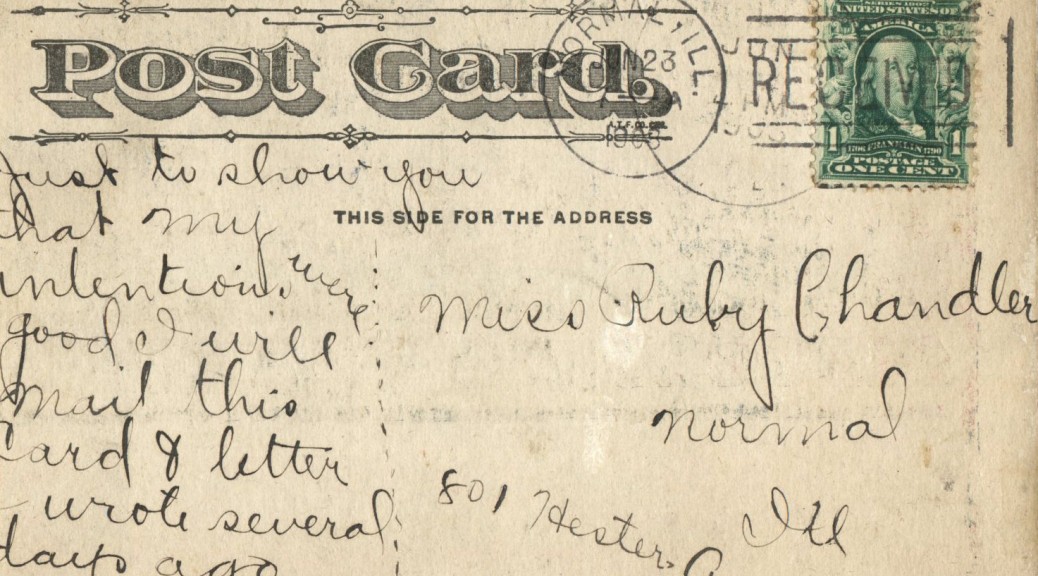 Post Card.
NORMAL, ILL.
JUN 23
1908
REC'
SERIES 1902
UNITED STATES OF
AMERICA
1 1
1706 FRANKLIN 1790
POSTAGE
ONE CENT
THIS SIDE FOR THE ADDRESS
Just to show you
that my
intentions were
good I will
mail this
card & letter
wrote several
days ago
Miss Ruby Chandler
Normal
801 Hester Ill